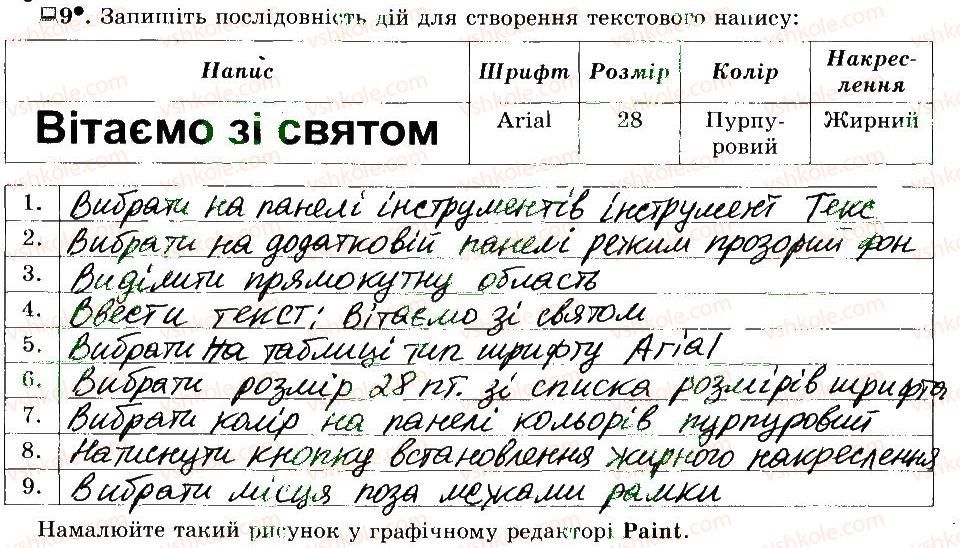 9•. Запишіть послідовність дій для створення текстового напису:
Напис Шрифт Розмір Колір Накрес-
лення
Вітаємо зі святом Arial 28 Пурпу- Жирний
ровий
1. Вибрати на панелі інструментів інструмент Текс
2. Вибрати на додатковій панелі режим прозорий фон
3. Виділити прямокутну область
4. Ввести текст: Вітаємо зі святом
5. Вибрати на таблиці тип шрифту Arial
6. Вибрати розмір 28 пт. зі списка розмірів шрифта
7. Вибрати колір на панелі кольорів пурпуровий
8. Натиснути кнопку встановлення жирного накреслення
9. Вибрати місця поза межами рамки
Намалюйте такий рисунок у графічному редакторі Paint.